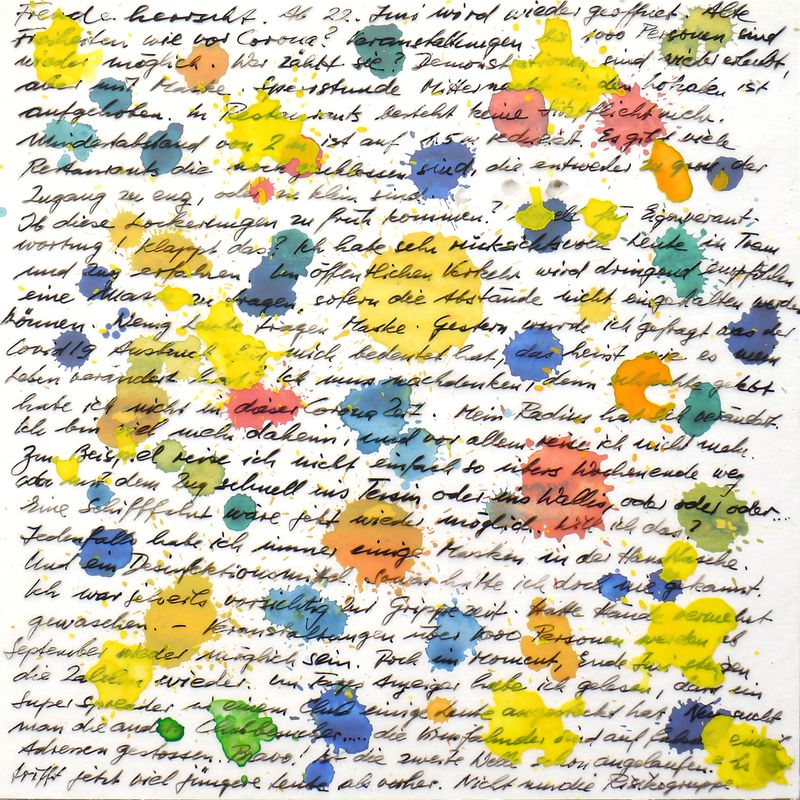 Freude herrscht. Ab 22. Juni wird wieder geöffnet. Alte
Freiheiten wie vor Corona? Veranstaltungen bis 1000 Personen sind
wieder möglich. Wer zählt sie? Demonstrationen sind wieder erlaubt,
aber mit Maske. Sperrstunde Mitternacht in den Lokalen ist
aufgehoben. In Restaurants besteht keine Sitzpflicht mehr.
Mindestabstand von 2 m ist auf 1.5 m reduziert. Es gibt viele
Restaurants die noch geschlossen sind, die entweder zu gross, der
Zugang zu eng, oder zu klein sind.
Ob diese Lockerungen zu früh kommen? für Eigenverant-
wortung, klappt das? Ich habe sehr rücksichtsvolle Leute in Tram
und Zug erfahren. Im öffentlichen Verkehr wird dringend empfohlen
eine Maske zu tragen, sofern die Abstände nicht eingehalten werden
können. Wenig Leute tragen Maske. Gestern wurde ich gefragt was der
Covid19 Ausbruch für mich bedeutet hat, das heisst wie es mein
Leben verändert hat. Ich muss nachdenken, denn schlechte gelebt
habe ich nicht in dieser Corona Zeit. Mein Radius hat sich verändert.
Ich bin viel mehr daheim, und vor allem reise ich nicht mehr.
Zum Beispiel reise ich nicht einfach so übers Wochenende weg
oder mit dem Zug schnell ins Tessin oder ins Wallis, oder oder oder...
Eine Schifffahrt wäre jetzt wieder möglich. Will ich das?
Jedenfalls habe ich immer einige Masken in der Handtasche.
Und ein Desinfektionsmittel. Sowas hatte ich doch nie gekannt.
Ich war jeweils vorsichtig zur Grippezeit. Hatte Hände vermehrt
gewaschen. - Veranstaltungen über 1000 Personen werden ab
September wieder möglich sein. Doch im Moment, Ende Juni steigen
die Zahlen wieder. Im Tages Anzeiger habe ich gelesen, dass ein
Superspreader in einem Club einige Leute angesteckt hat. Nun sucht
man die and. Clubbesucher.... die und auf
Adressen gestossen. Bravo, ist die zweite Welle schon angelaufen. Es
trifft jetzt viel jüngere Leute als vorher. Nicht nur die Risikogruppe.